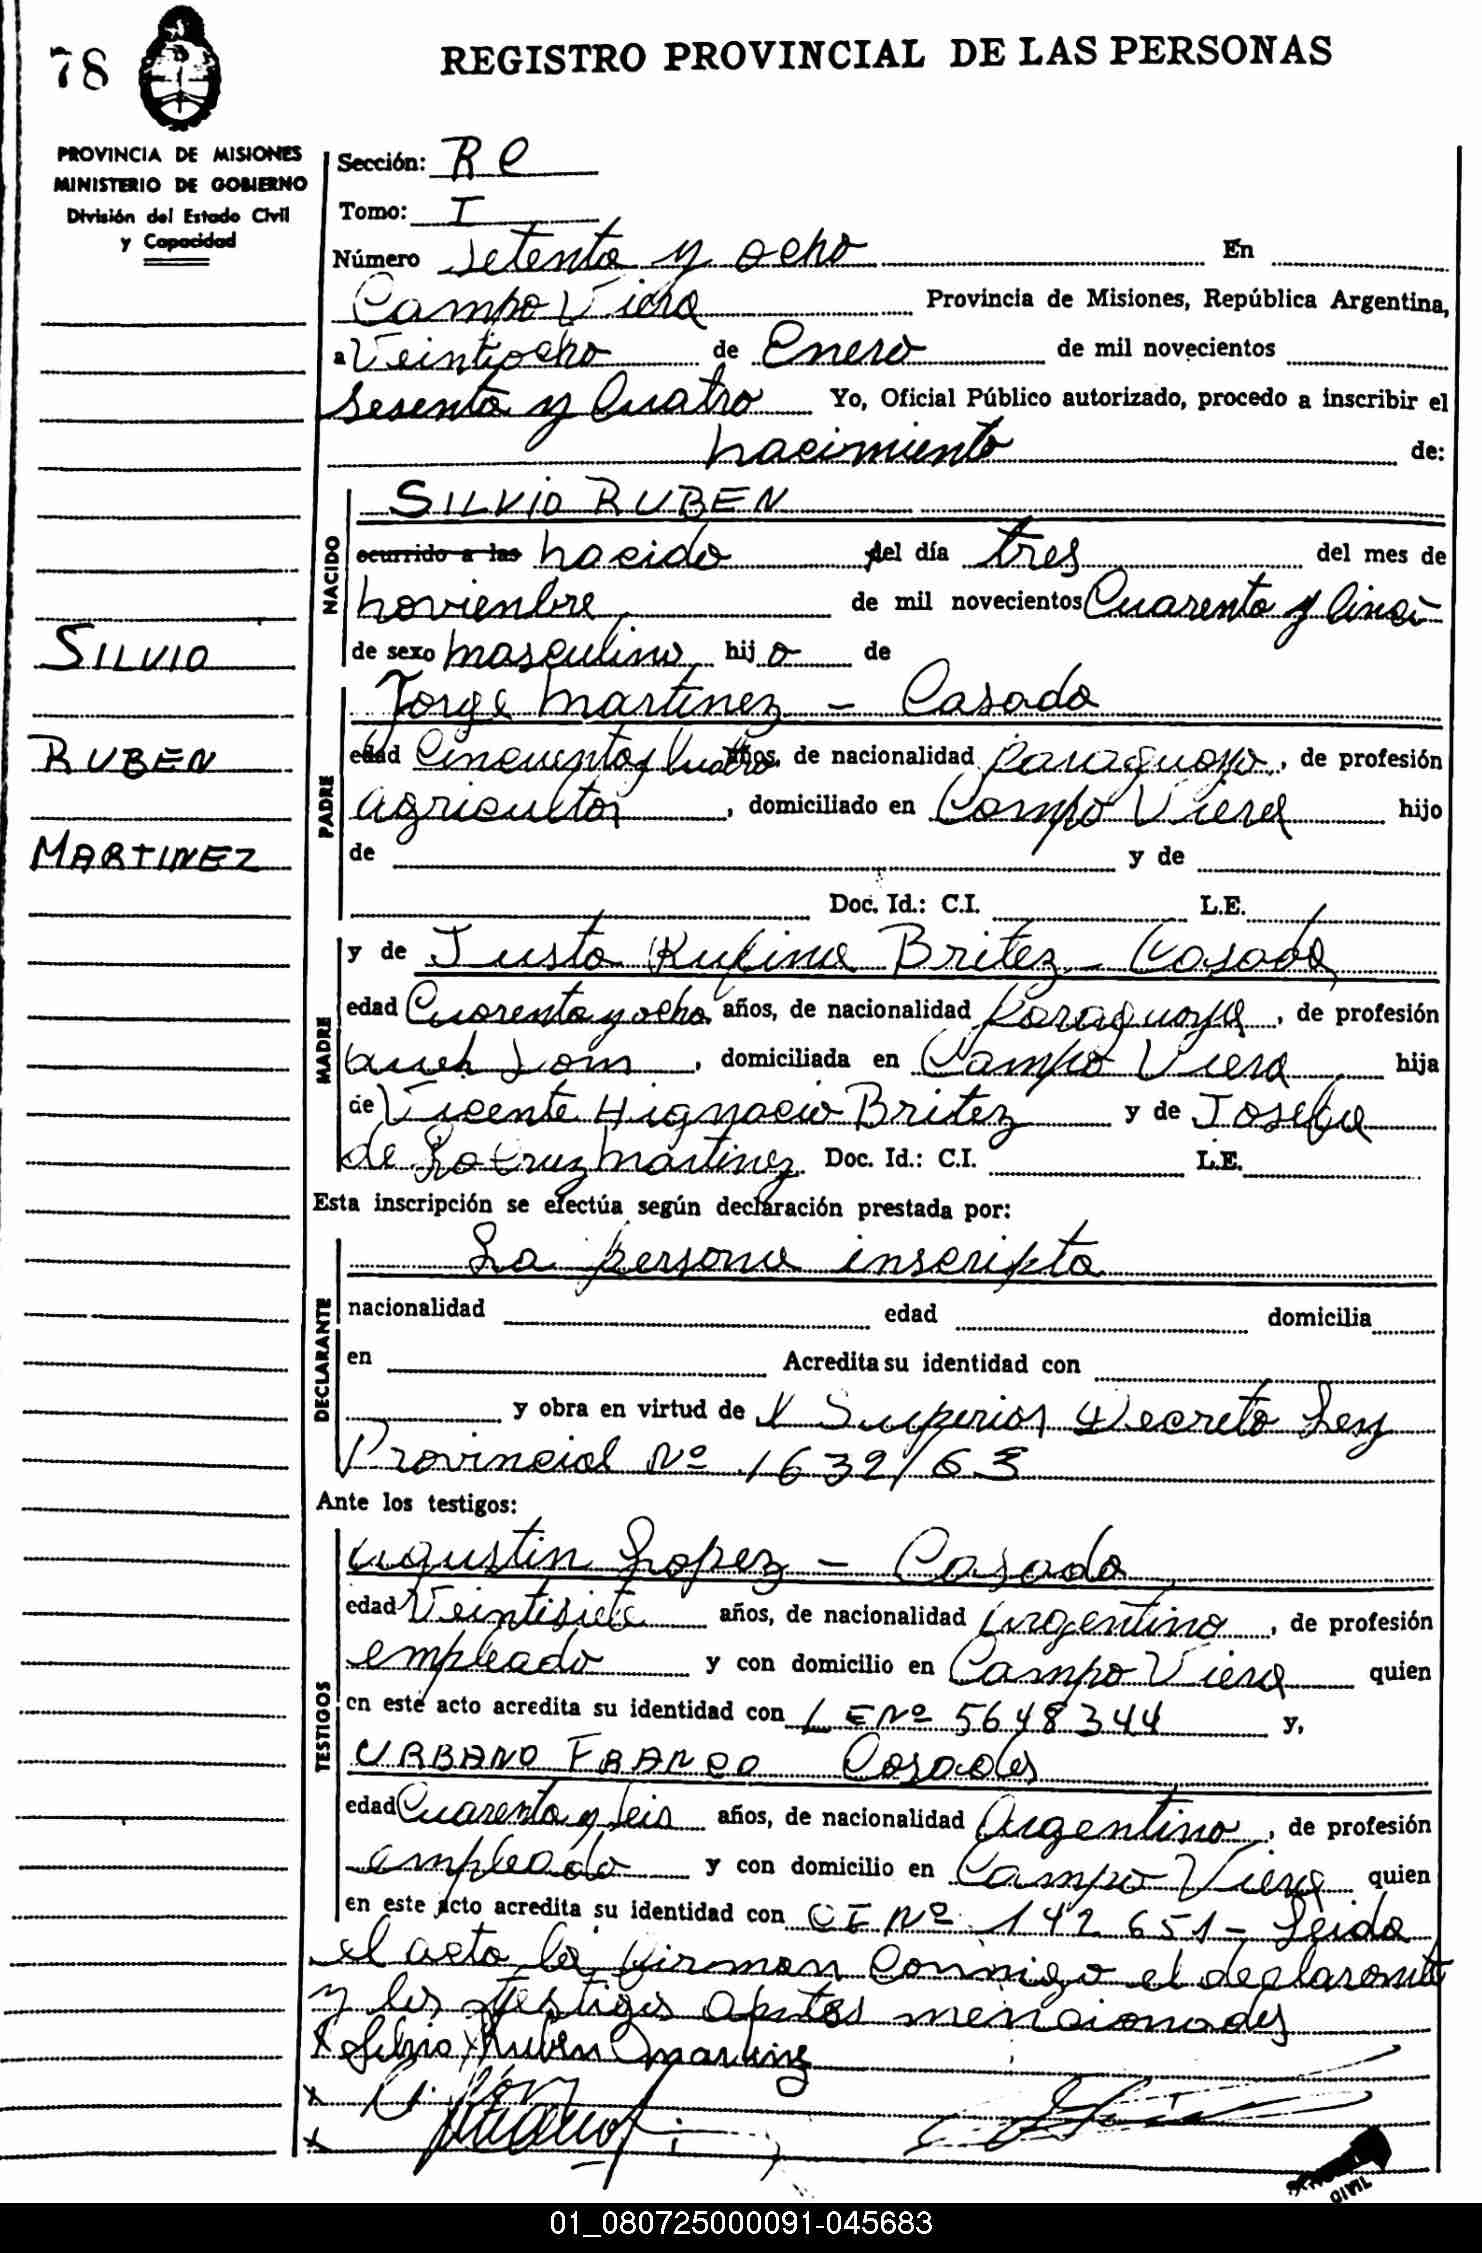 78
REGISTRO PROVINCIAL DE LAS PERSONAS
PROVINCIA DE MISIONES
MINISTERIO DE GOBIERNO
División del Estado Civil
y Capacidad
SILVIO
RUBEN
MARTINEZ
Sección: R C
Tomo: I
Número Setenta y ocho En
Campo Viera Provincia de Misiones, República Argentina,
a Veintiocho de Enero de mil novecientos
Sesenta y Cuatro Yo, Oficial Público autorizado, procedo a inscribir el
nacimiento de:
NACIDO
SILVIO RUBEN
ocurrido a las nacido del día tres del mes de
novienbre de mil novecientos Cuarenta y Cinco
de sexo masculino hijo de
PADRE
Jorge Martinez - Casado
edad Cincuenta y Cuatro años, de nacionalidad Paraguayo, de profesión
agricultor, domiciliado en Campo Viera hijo
de y de
Doc. Id.: C.I. L.E.
MADRE
y de Justa Rufina Britez - Casada
edad Cuarenta y ocho años, de nacionalidad Paraguaya, de profesión
, domiciliada en Campo Viera hija
de Vicente Hignacio Britez y de Josefa
de La Cruz Martinez Doc. Id.: C.I. L.E.
Esta inscripción se efectúa según declaración prestada por:
DECLARANTE
La persona inscripta
nacionalidad edad domicilia
en Acredita su identidad con
y obra en virtud de Superior Decreto Ley
Provincial Nº 1632/63
Ante los testigos:
TESTIGOS
Agustin Lopez - Casado
edad Veintisiete años, de nacionalidad Argentino, de profesión
empleado y con domicilio en Campo Viera quien
en este acto acredita su identidad con L E Nº 5648344 y,
URBANO FRANCO Casados
edad Cuarenta y Seis años, de nacionalidad Argentino, de profesión
empleado y con domicilio en Campo Viera quien
en este acto acredita su identidad con C I Nº 142 651 - Leida
el acta la firman Conmigo el declarante
y los testigos mencionados
x Silvio Ruben Martinez
x
x
CIVIL
01_080725000091-045683